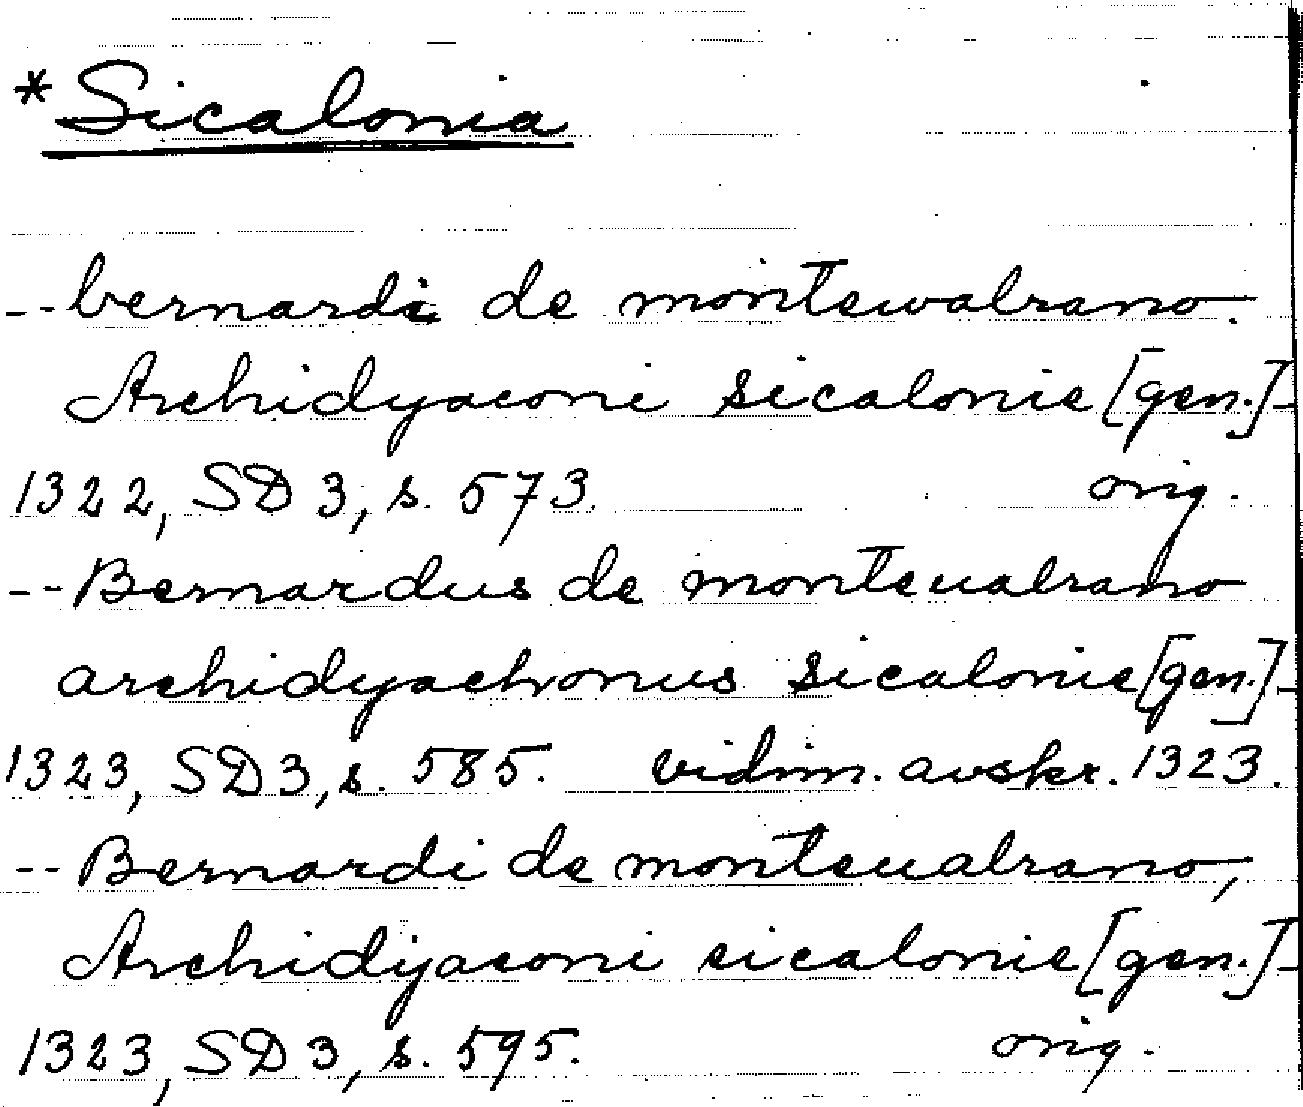 *Sicalonia
--bernardi de montewalrano.
Archidyaconi sicalonie [gen.]-
1322, SD 3, s. 573. orig.
--Bernardus de monteualrano
archidyachonus sicalonie [gen.]-
1323, SD 3, s. 585. vidim. avskr. 1323.
--Bernardi de monteualrano,
Archidijaconi sicalonie [gen.]-
1323, SD 3, s. 595. orig.